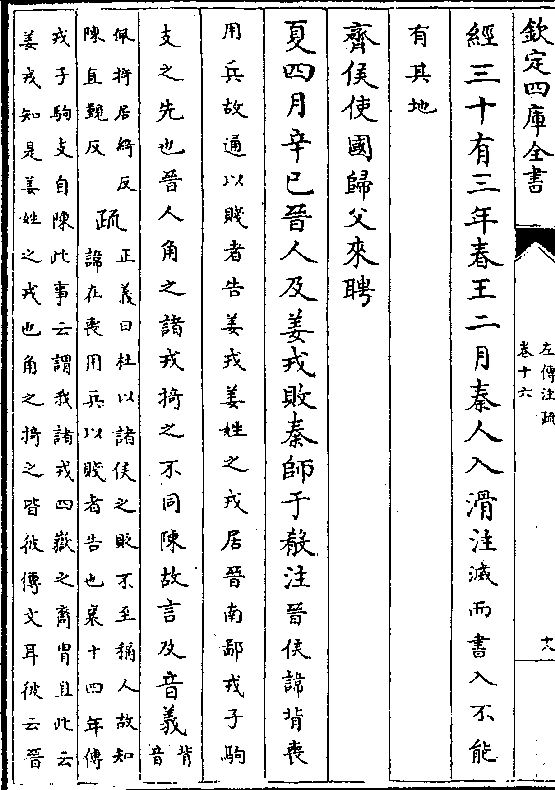 欽定四庫全書
左傳注疏
卷十六
經三十有三年春王二月秦人入滑注滅而書入不能
有其地
齊侯使國歸父來聘
夏四月辛巳晉人及姜戎敗秦師于殽注晉侯諱背喪
用兵故通以賤者告姜戎姜姓之戎居晉南鄙戎子駒
支之先也晉人角之諸戎掎之不同陳故言及音義背
音
佩掎居綺反
陳直覲反
疏
正義曰杜以諸侯之敗不至稱人故知
諱在喪用兵以賤者告也襄十四年傳
戎子駒支自陳此事云謂我諸戎四嶽之裔胄且此云
姜戎知是姜姓之戎也角之掎之皆彼傳文耳彼云晉